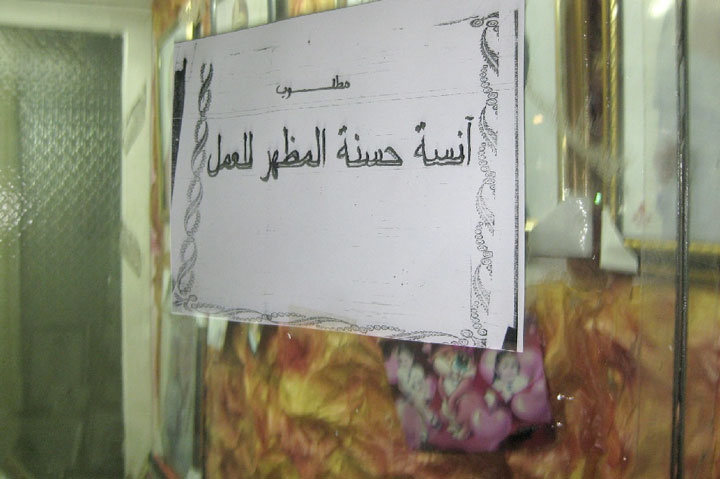 مطلوب
آنسة حسنة المظهر للعمل